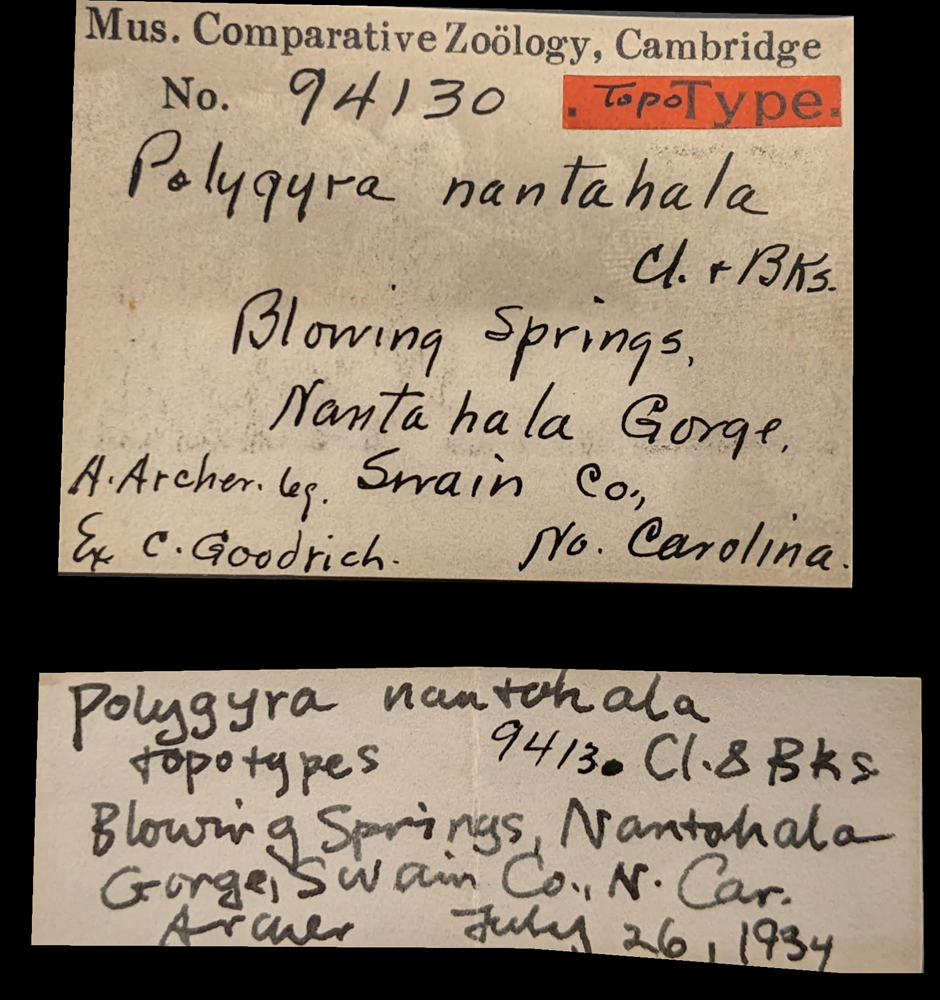 Mus. Comparative Zoölogy, Cambridge
No. 94130 . TopoType.
Polygyra nantahala
Cl. + Bks.
Blowing Springs,
Nantahala Gorge,
A. Archer. leg. Swain Co.,
Ex C. Goodrich. No. Carolina.
Polygyra nantahala
topotypes 94130 Cl. & Bks
Blowing Springs, Nantahala
Gorge, Swain Co., N. Car.
Archer July 26, 1934